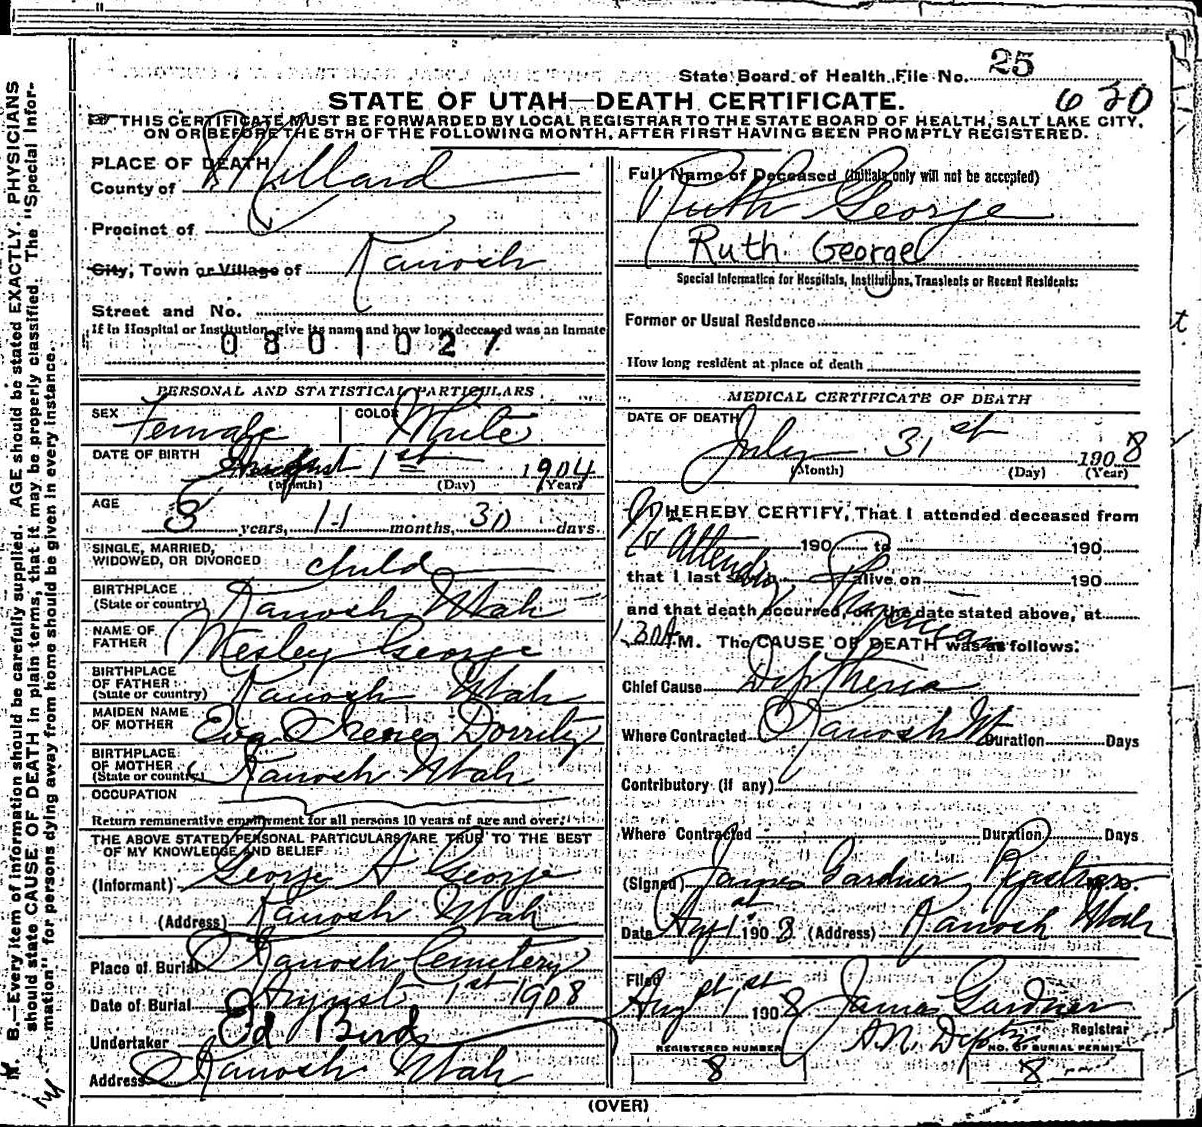 State Board of Health File No. 25
STATE OF UTAH—DEATH CERTIFICATE.
630
THIS CERTIFICATE MUST BE FORWARDED BY LOCAL REGISTRAR TO THE STATE BOARD OF HEALTH, SALT LAKE CITY,
ON OR BEFORE THE 5TH OF THE FOLLOWING MONTH, AFTER FIRST HAVING BEEN PROMPTLY REGISTERED.
N. B.—Every item of information should be carefully supplied. AGE should be stated EXACTLY. PHYSICIANS
should state CAUSE OF DEATH in plain terms, that it may be properly classified. The "Special Infor-
mation" for persons dying away from home should be given in every instance.
PLACE OF DEATH
County of Millard
Precinct of
City, Town or Village of Kanosh
Street and No.
If in Hospital or Institution, give its name and how long deceased was an inmate
0801027
PERSONAL AND STATISTICAL PARTICULARS
SEX Female COLOR White
DATE OF BIRTH August 1st 1904
(Month) (Day) (Year)
AGE 3 years, 11 months, 30 days
SINGLE, MARRIED,
WIDOWED, OR DIVORCED child
BIRTHPLACE
(State or country) Kanosh Utah
NAME OF
FATHER Wesley George
BIRTHPLACE
OF FATHER
(State or country) Kanosh Utah
MAIDEN NAME
OF MOTHER Eva Irenea Dorrity
BIRTHPLACE
OF MOTHER
(State or country) Kanosh Utah
OCCUPATION
Return remunerative employment for all persons 10 years of age and over.
THE ABOVE STATED PERSONAL PARTICULARS ARE TRUE TO THE BEST
OF MY KNOWLEDGE AND BELIEF
(Informant) George A George
(Address) Kanosh Utah
Place of Burial Kanosh Cemetery
Date of Burial August 1st 1908
Undertaker Ed Bird
Address Kanosh Utah
Full Name of Deceased (Initials only will not be accepted)
Ruth George
Ruth George
Special Information for Hospitals, Institutions, Transients or Recent Residents:
Former or Usual Residence
How long resident at place of death
MEDICAL CERTIFICATE OF DEATH
DATE OF DEATH July 31st 1908
(Month) (Day) (Year)
I HEREBY CERTIFY, That I attended deceased from
No Attending 190 to 190
that I last saw alive on 190
Physician
and that death occurred, on the date stated above, at
1.30 A M. The CAUSE OF DEATH was as follows:
Chief Cause Diptheria
Where Contracted Kanosh Ut Duration Days
Contributory (if any)
Where Contracted Duration Days
(Signed) James Gardner, Registrar M. D.
Date Aug 1st 1908 (Address) Kanosh Utah
Filed
Aug 1st 1908 James Gardner
Registrar
REGISTERED NUMBER
8
NO. OF BURIAL PERMIT
8
(OVER)